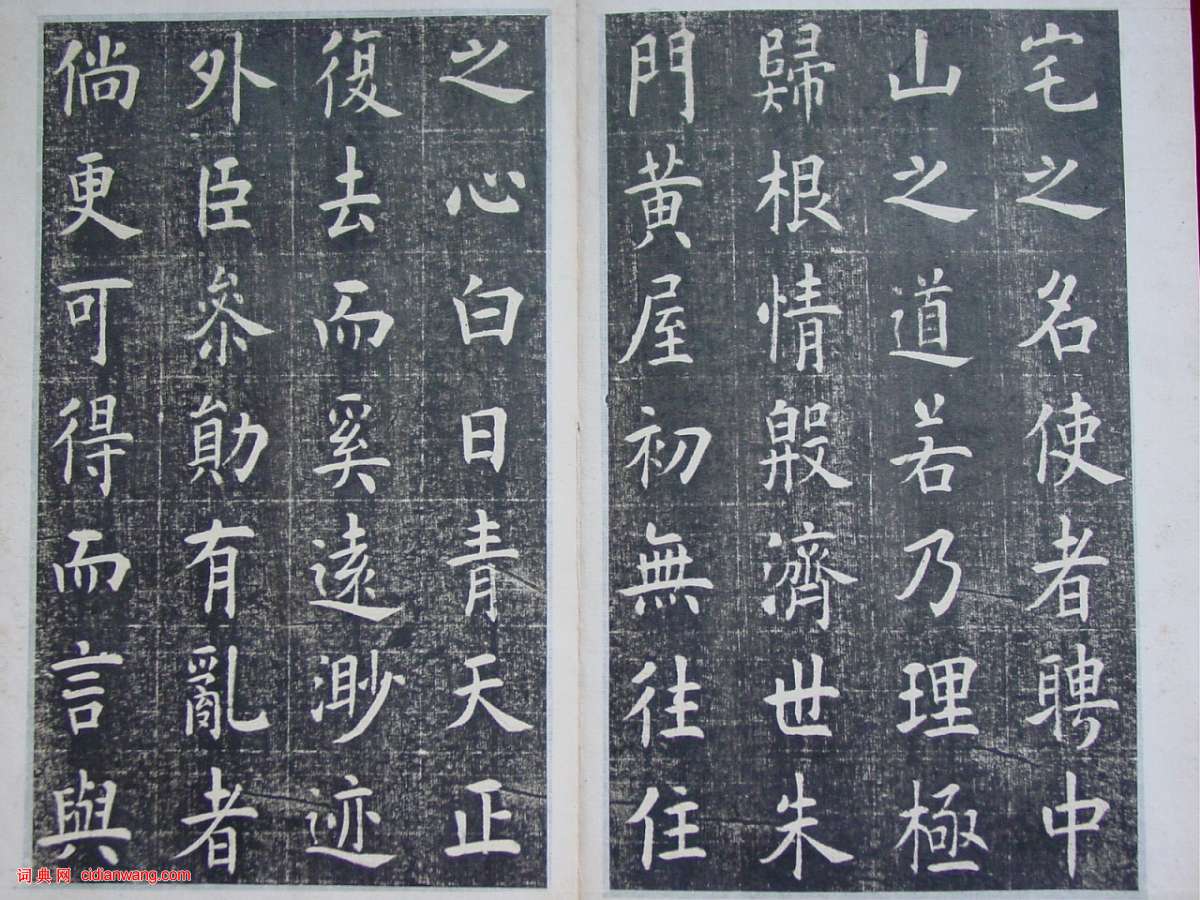 宅之名使者聘中
山之道若乃理極
歸根情殷濟世朱
門黃屋初無往住
之心白日青天正
復去而奚遠渺迹
外臣叅勛有亂者
倘更可得而言與
词典网 cidianwang.com